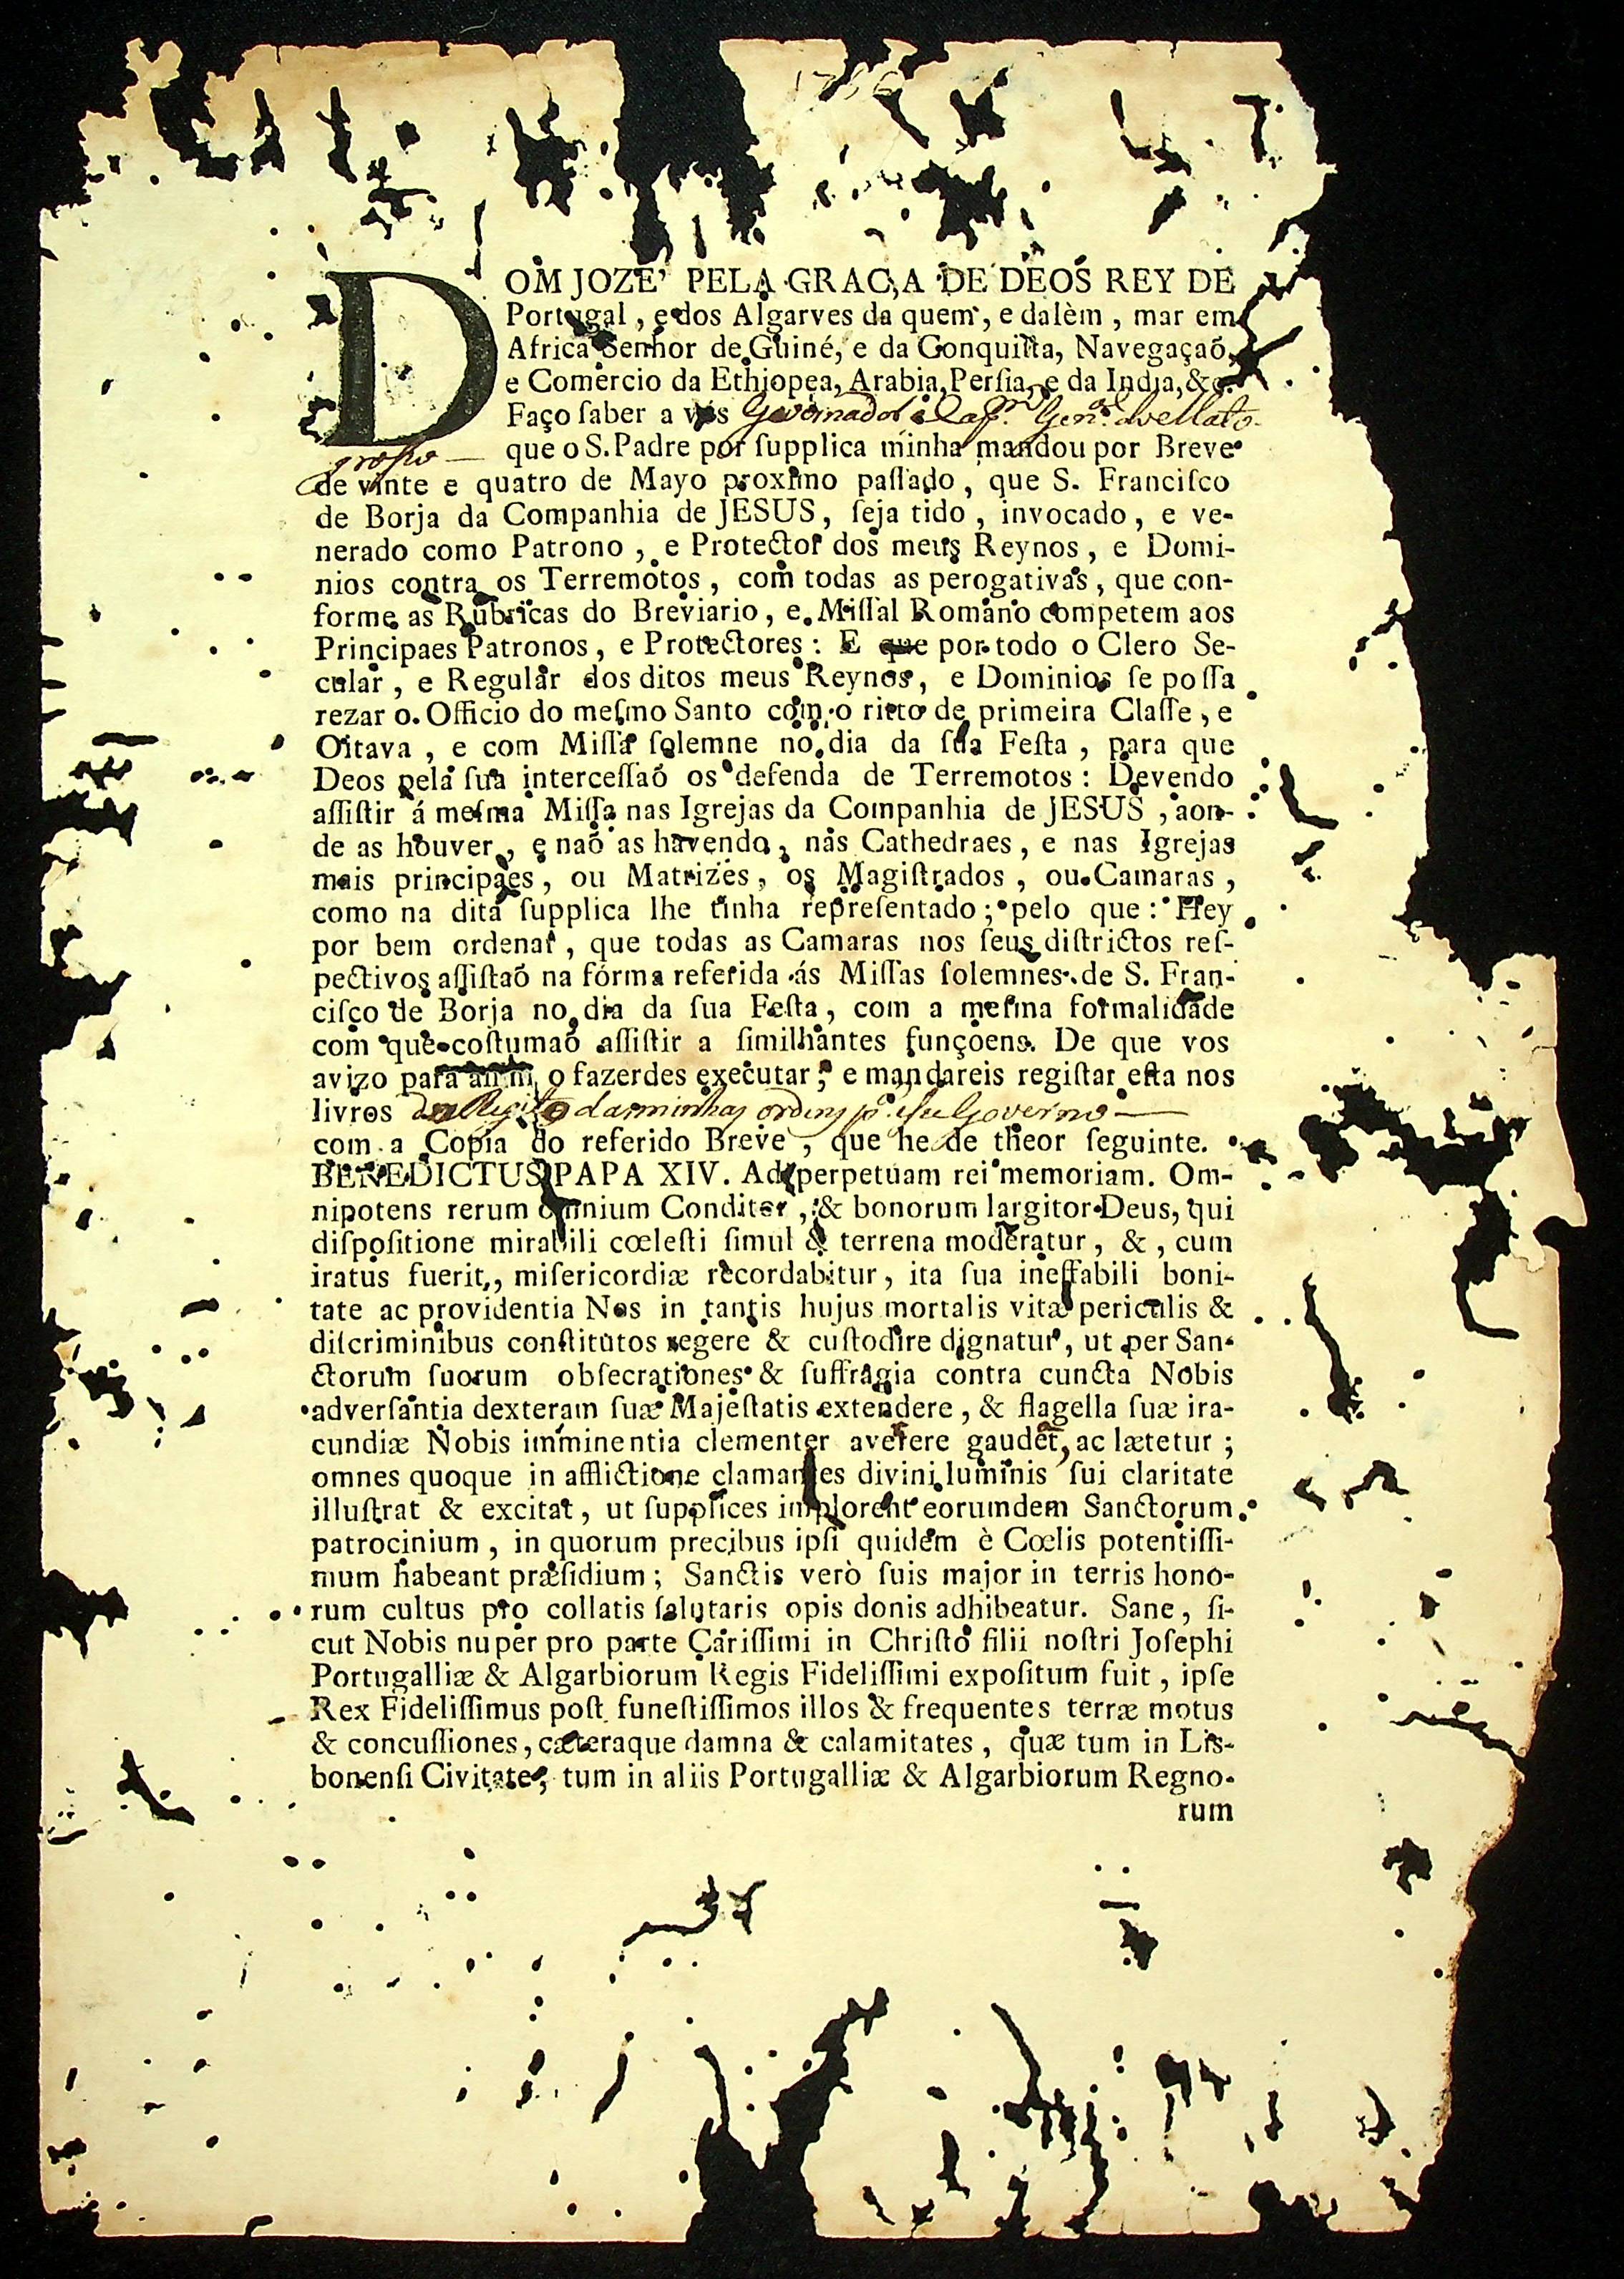 1756
DOM JOZE' PELA GRAC,A DE DEOS REY DE
Portugal, e dos Algarves da quem, e dalèm, mar em
Africa Senhor de Guiné, e da Conquiſta, Navegaçaõ,
e Comercio da Ethiopea, Arabia, Perſia, e da India, &c.
Faço ſaber a vós Governador e Capp.m Gen.al do Matto
groſso — que o S. Padre por ſupplica minha mandou por Breve
de vinte e quatro de Mayo proximo paſſado, que S. Franciſco
de Borja da Companhia de JESUS, ſeja tido, invocado, e ve-
nerado como Patrono, e Protector dos meus Reynos, e Domi-
nios contra os Terremotos, com todas as perogativas, que con-
forme as Rubricas do Breviario, e Miſſal Romano competem aos
Principaes Patronos, e Protectores: E que por todo o Clero Se-
cular, e Regular dos ditos meus Reynos, e Dominios ſe poſſa
rezar o Officio do meſmo Santo com o ritto de primeira Claſſe, e
Oitava, e com Miſſa ſolemne no dia da ſua Feſta, para que
Deos pela ſua interceſſaõ os defenda de Terremotos: Devendo
aſſiſtir á meſma Miſſa nas Igrejas da Companhia de JESUS, aon-
de as houver, e naõ as havendo, nas Cathedraes, e nas Igrejas
mais principaes, ou Matrizes, os Magiſtrados, ou Camaras,
como na dita ſupplica lhe tinha repreſentado; pelo que: Hey
por bem ordenar, que todas as Camaras nos ſeus diſtrictos reſ-
pectivos aſſiſtaõ na fórma referida ás Miſſas ſolemnes de S. Fran-
ciſco de Borja no dia da ſua Feſta, com a meſma formalidade
com que coſtumaõ aſſiſtir a ſimilhantes funçoens. De que vos
avizo para aſſim o fazerdes executar, e mandareis regiſtar eſta nos
livros do Regiſto das minhas ordens p.a eſse Governo —
com a Copia do referido Breve, que he de theor ſeguinte.
BENEDICTUS PAPA XIV. Ad perpetuam rei memoriam. Om-
nipotens rerum omnium Conditor, & bonorum largitor Deus, qui
diſpoſitione mirabili cœleſti ſimul & terrena moderatur, &, cum
iratus fuerit, miſericordiæ recordabitur, ita ſua ineffabili boni-
tate ac providentia Nos in tantis hujus mortalis vitæ periculis &
diſcriminibus conſtitutos regere & cuſtodire dignatur, ut per San-
ctorum ſuorum obſecrationes & ſuffragia contra cuncta Nobis
adverſantia dexteram ſuæ Majeſtatis extendere, & flagella ſuæ ira-
cundiæ Nobis imminentia clementer avertere gaudet, ac lætetur;
omnes quoque in afflictione clamantes divini luminis ſui claritate
illuſtrat & excitat, ut ſupplices implorent eorumdem Sanctorum
patrocinium, in quorum precibus ipſi quidem è Cœlis potentiſſi-
mum habeant præſidium; Sanctis verò ſuis major in terris hono-
rum cultus pro collatis ſalutaris opis donis adhibeatur. Sane, ſi-
cut Nobis nuper pro parte Cariſſimi in Chriſto filii noſtri Joſephi
Portugalliæ & Algarbiorum Regis Fideliſſimi expoſitum fuit, ipſe
Rex Fideliſſimus poſt funeſtiſſimos illos & frequentes terræ motus
& concuſſiones, cæteraque damna & calamitates, quæ tum in Lis-
bonenſi Civitate, tum in aliis Portugalliæ & Algarbiorum Regno-
rum